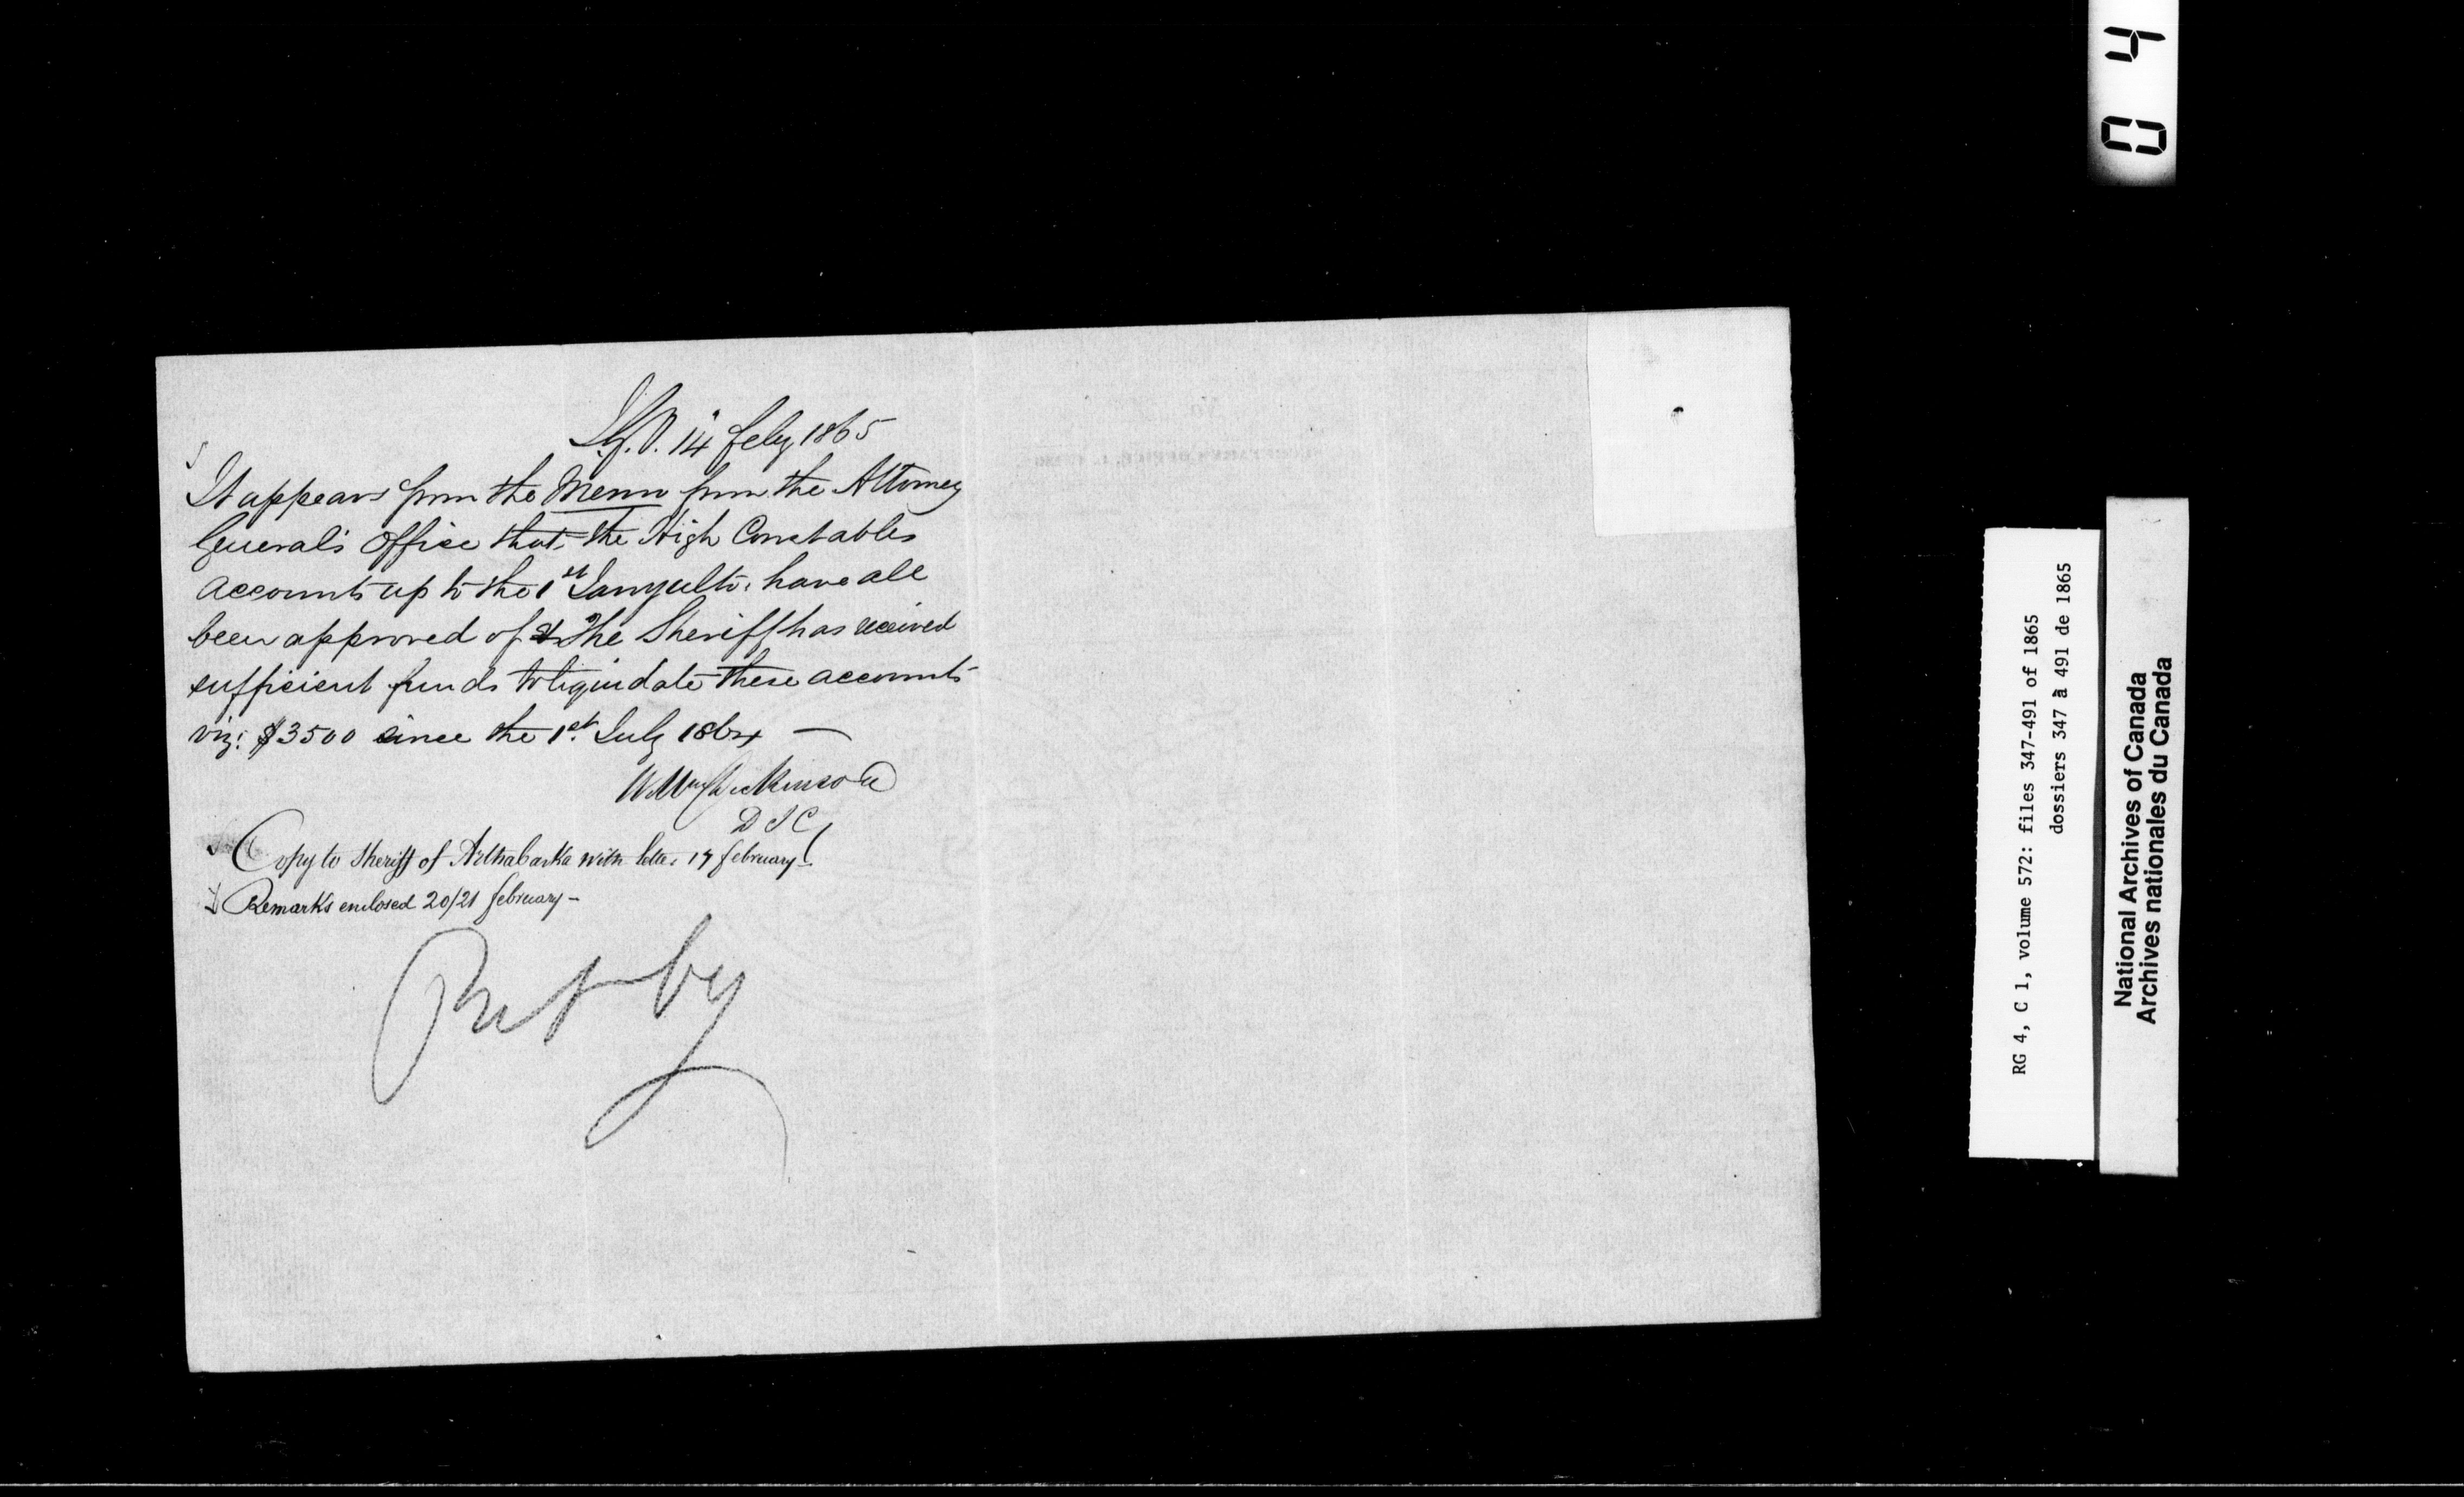 I.G.O. 14 feby 1865
It appears from the Memo from the Attorney
General's Office that the High Constables
accounts up to the 1st Jany ulto: have all
been approved of & The Sheriff has received
sufficient funds to liquidate these accounts
viz: $3500 since the 1st. July 1864 —
Wm Dickinson
D I G
Copy to Sheriff of Arthabaska with letter 17 february
Remarks enclosed 20/21 february -
Put by
04
RG 4, C 1, volume 572: files 347-491 of 1865
dossiers 347 à 491 de 1865
National Archives of Canada
Archives nationales du Canada